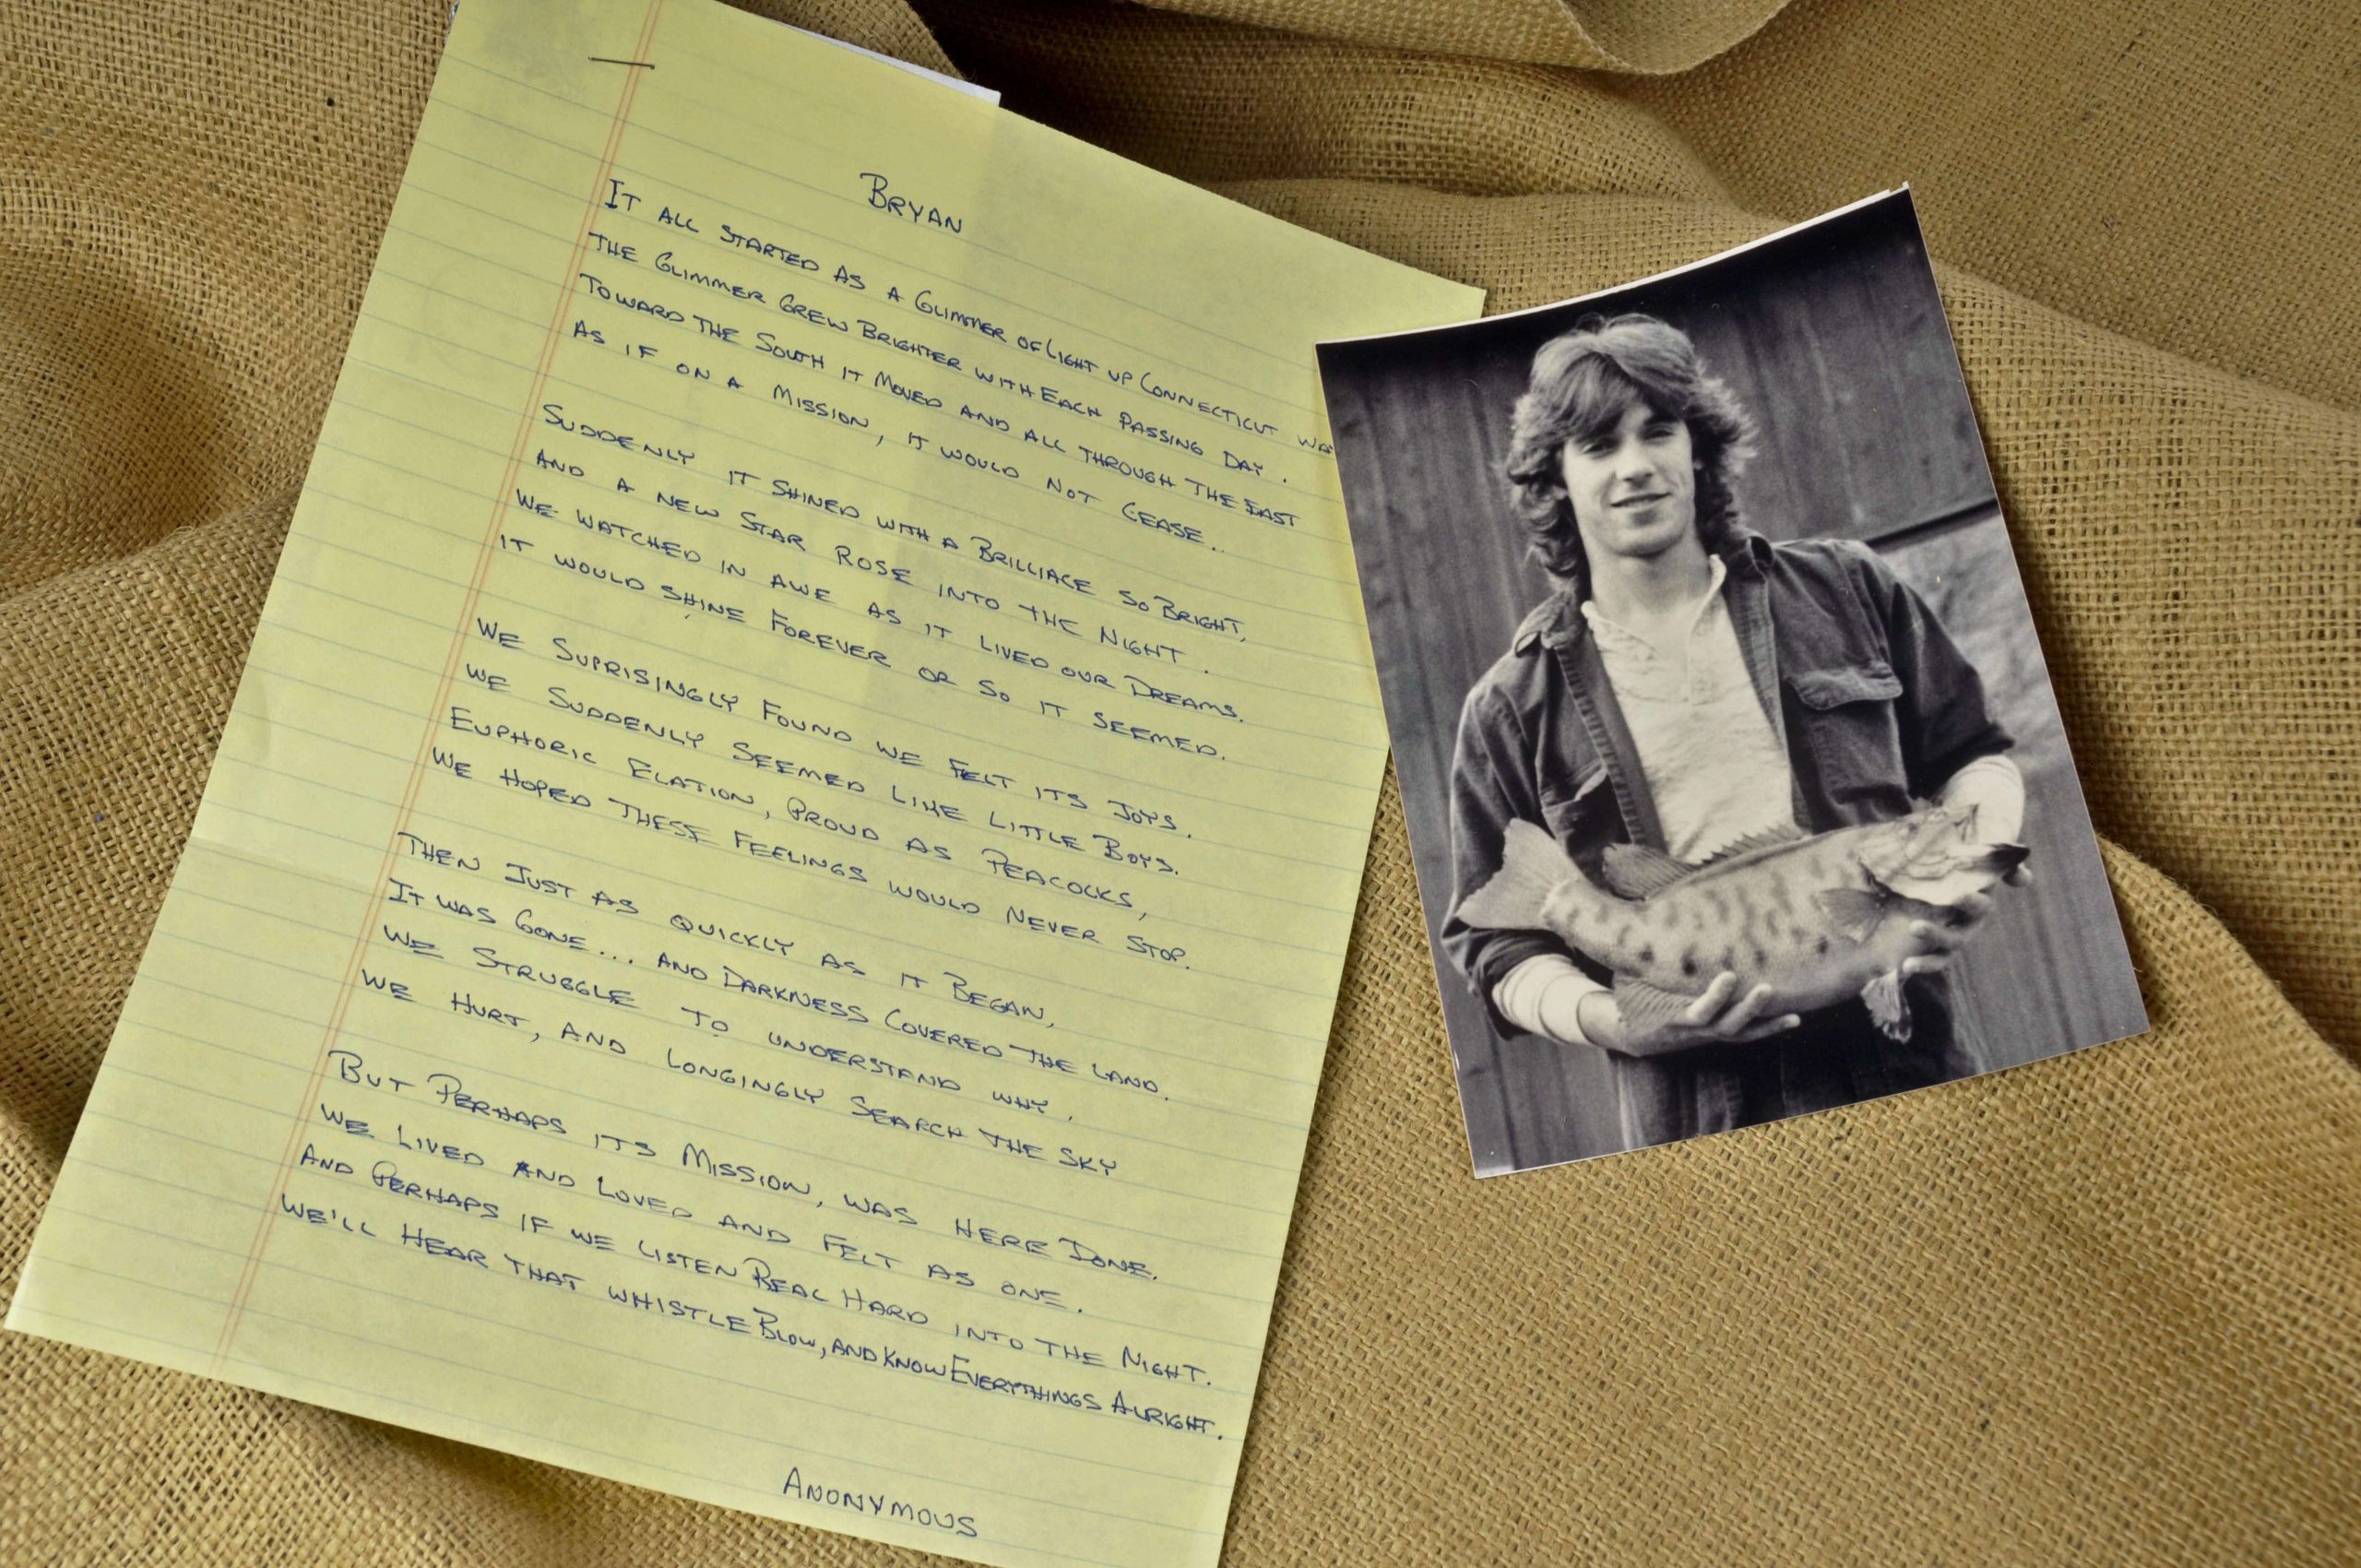 BRYAN
IT ALL STARTED AS A GLIMMER OF LIGHT UP CONNECTICUT
THE GLIMMER GREW BRIGHTER WITH EACH PASSING DAY.
TOWARD THE SOUTH IT MOVED AND ALL THROUGH THE EAST
AS IF ON A MISSION, IT WOULD NOT CEASE..
SUDDENLY IT SHINED WITH A BRILLIACE SO BRIGHT,
AND A NEW STAR ROSE INTO THE NIGHT.
WE WATCHED IN AWE AS IT LIVED OUR DREAMS.
IT WOULD SHINE FOREVER OR SO IT SEEMED.
WE SUPRISINGLY FOUND WE FELT ITS JOYS.
WE SUDDENLY SEEMED LIKE LITTLE BOYS.
EUPHORIC ELATION, PROUD AS PEACOCKS,
WE HOPED THESE FEELINGS WOULD NEVER STOP.
THEN JUST AS QUICKLY AS IT BEGAN,
IT WAS GONE... AND DARKNESS COVERED THE LAND.
WE STRUGGLE TO UNDERSTAND WHY.
WE HURT, AND LONGINGLY SEARCH THE SKY
BUT PERHAPS ITS MISSION, WAS HERE DONE.
WE LIVED AND LOVED AND FELT AS ONE.
AND PERHAPS IF WE LISTEN REAL HARD INTO THE NIGHT.
WE'LL HEAR THAT WHISTLE BLOW, AND KNOW EVERYTHINGS ALRIGHT.
ANONYMOUS